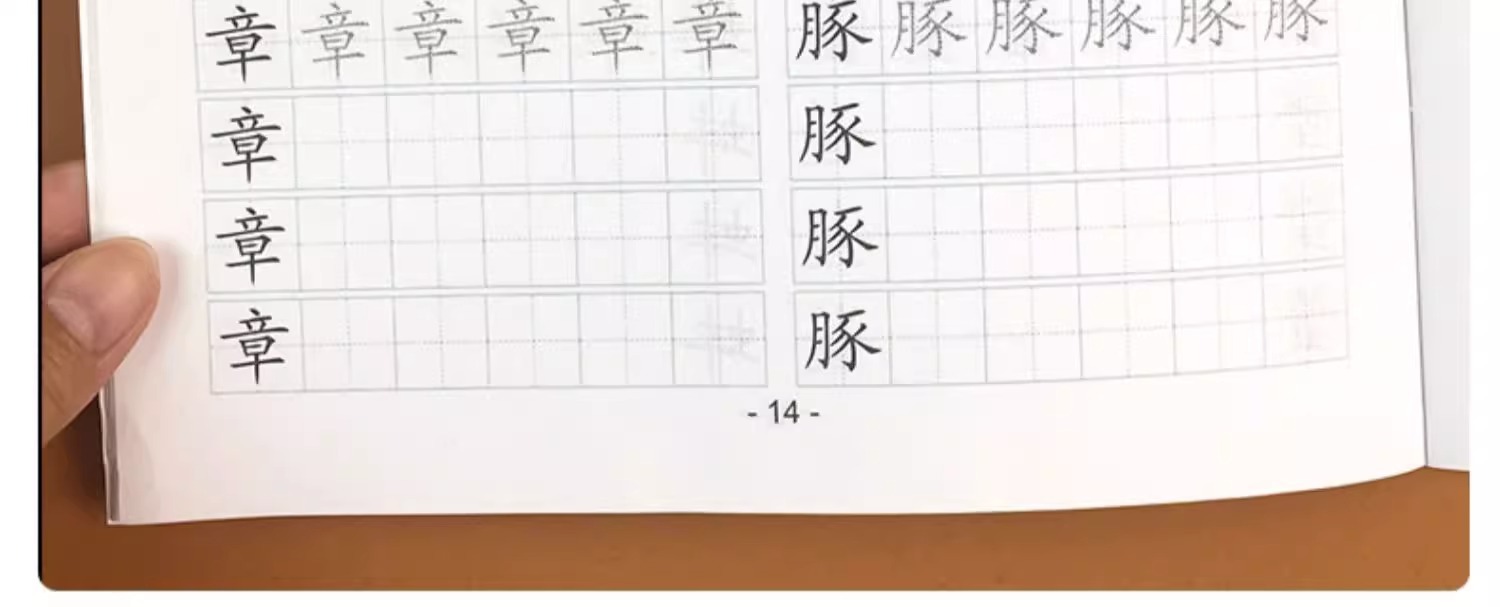 章章章章章章 豚豚豚豚豚豚
章 豚
章 豚
章 豚
- 14 -